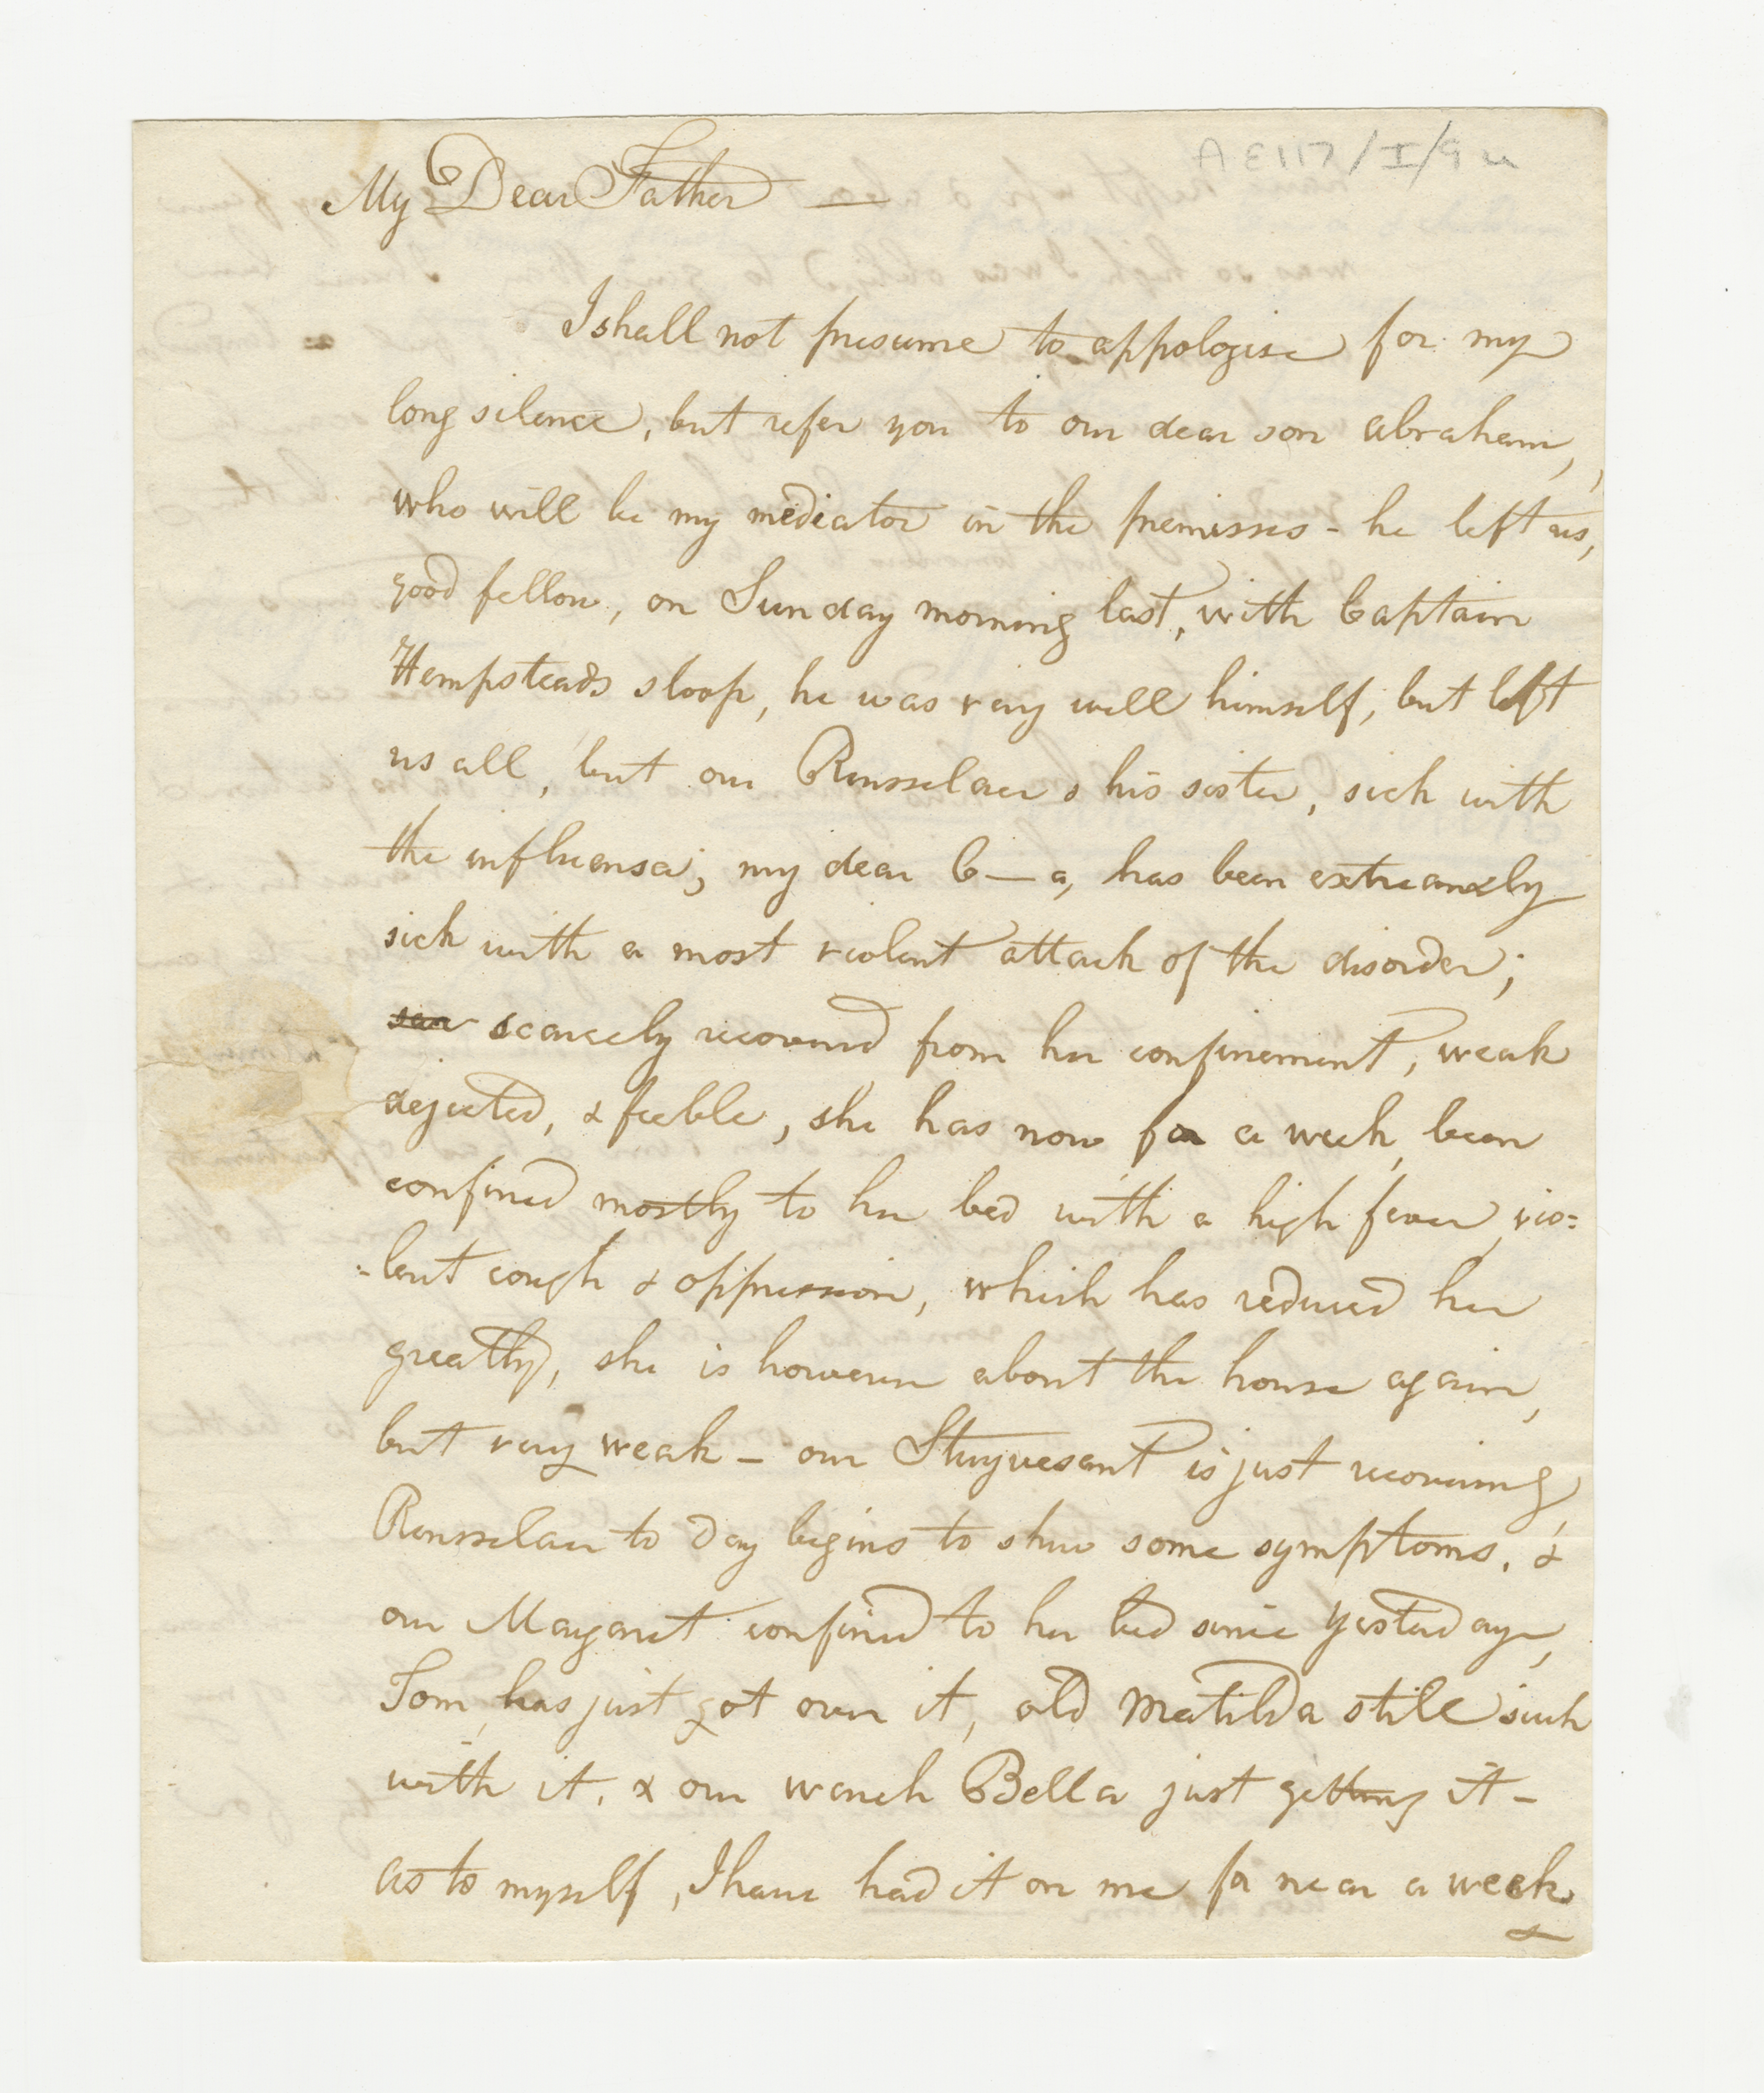 AE117/I/9u
My Dear Father —
I shall not presume to appologise for my
long silence, but refer you to our dear son abraham,
who will be my mediator in the premisses - he left us,
good fellow, on Sunday morning last, with Captain
Hempsteads sloop, he was very well himself, but left
us all, but our Rensselaer & his sister, sick with
the influensa; my dear C—a, has been extreamely
sick with a most violent attack of the disorder;
scarcely recovered from her confinement, weak
dejected, & feeble, she has now for a week, been
confined mostly to her bed with a high fever, vio=
=lent cough & oppression, which has reduced her
greatly, she is however about the house again,
but very weak — our Stuyvesant is just recovering,
Rensselaer to day begins to shew some symptoms, &
our Margaret confined to her bed since yesterday,
Tom, has just got over it, old Matilda stile sick
with it, & our wench Bella just getting it —
as to myself, I have had it on me for near a week
&